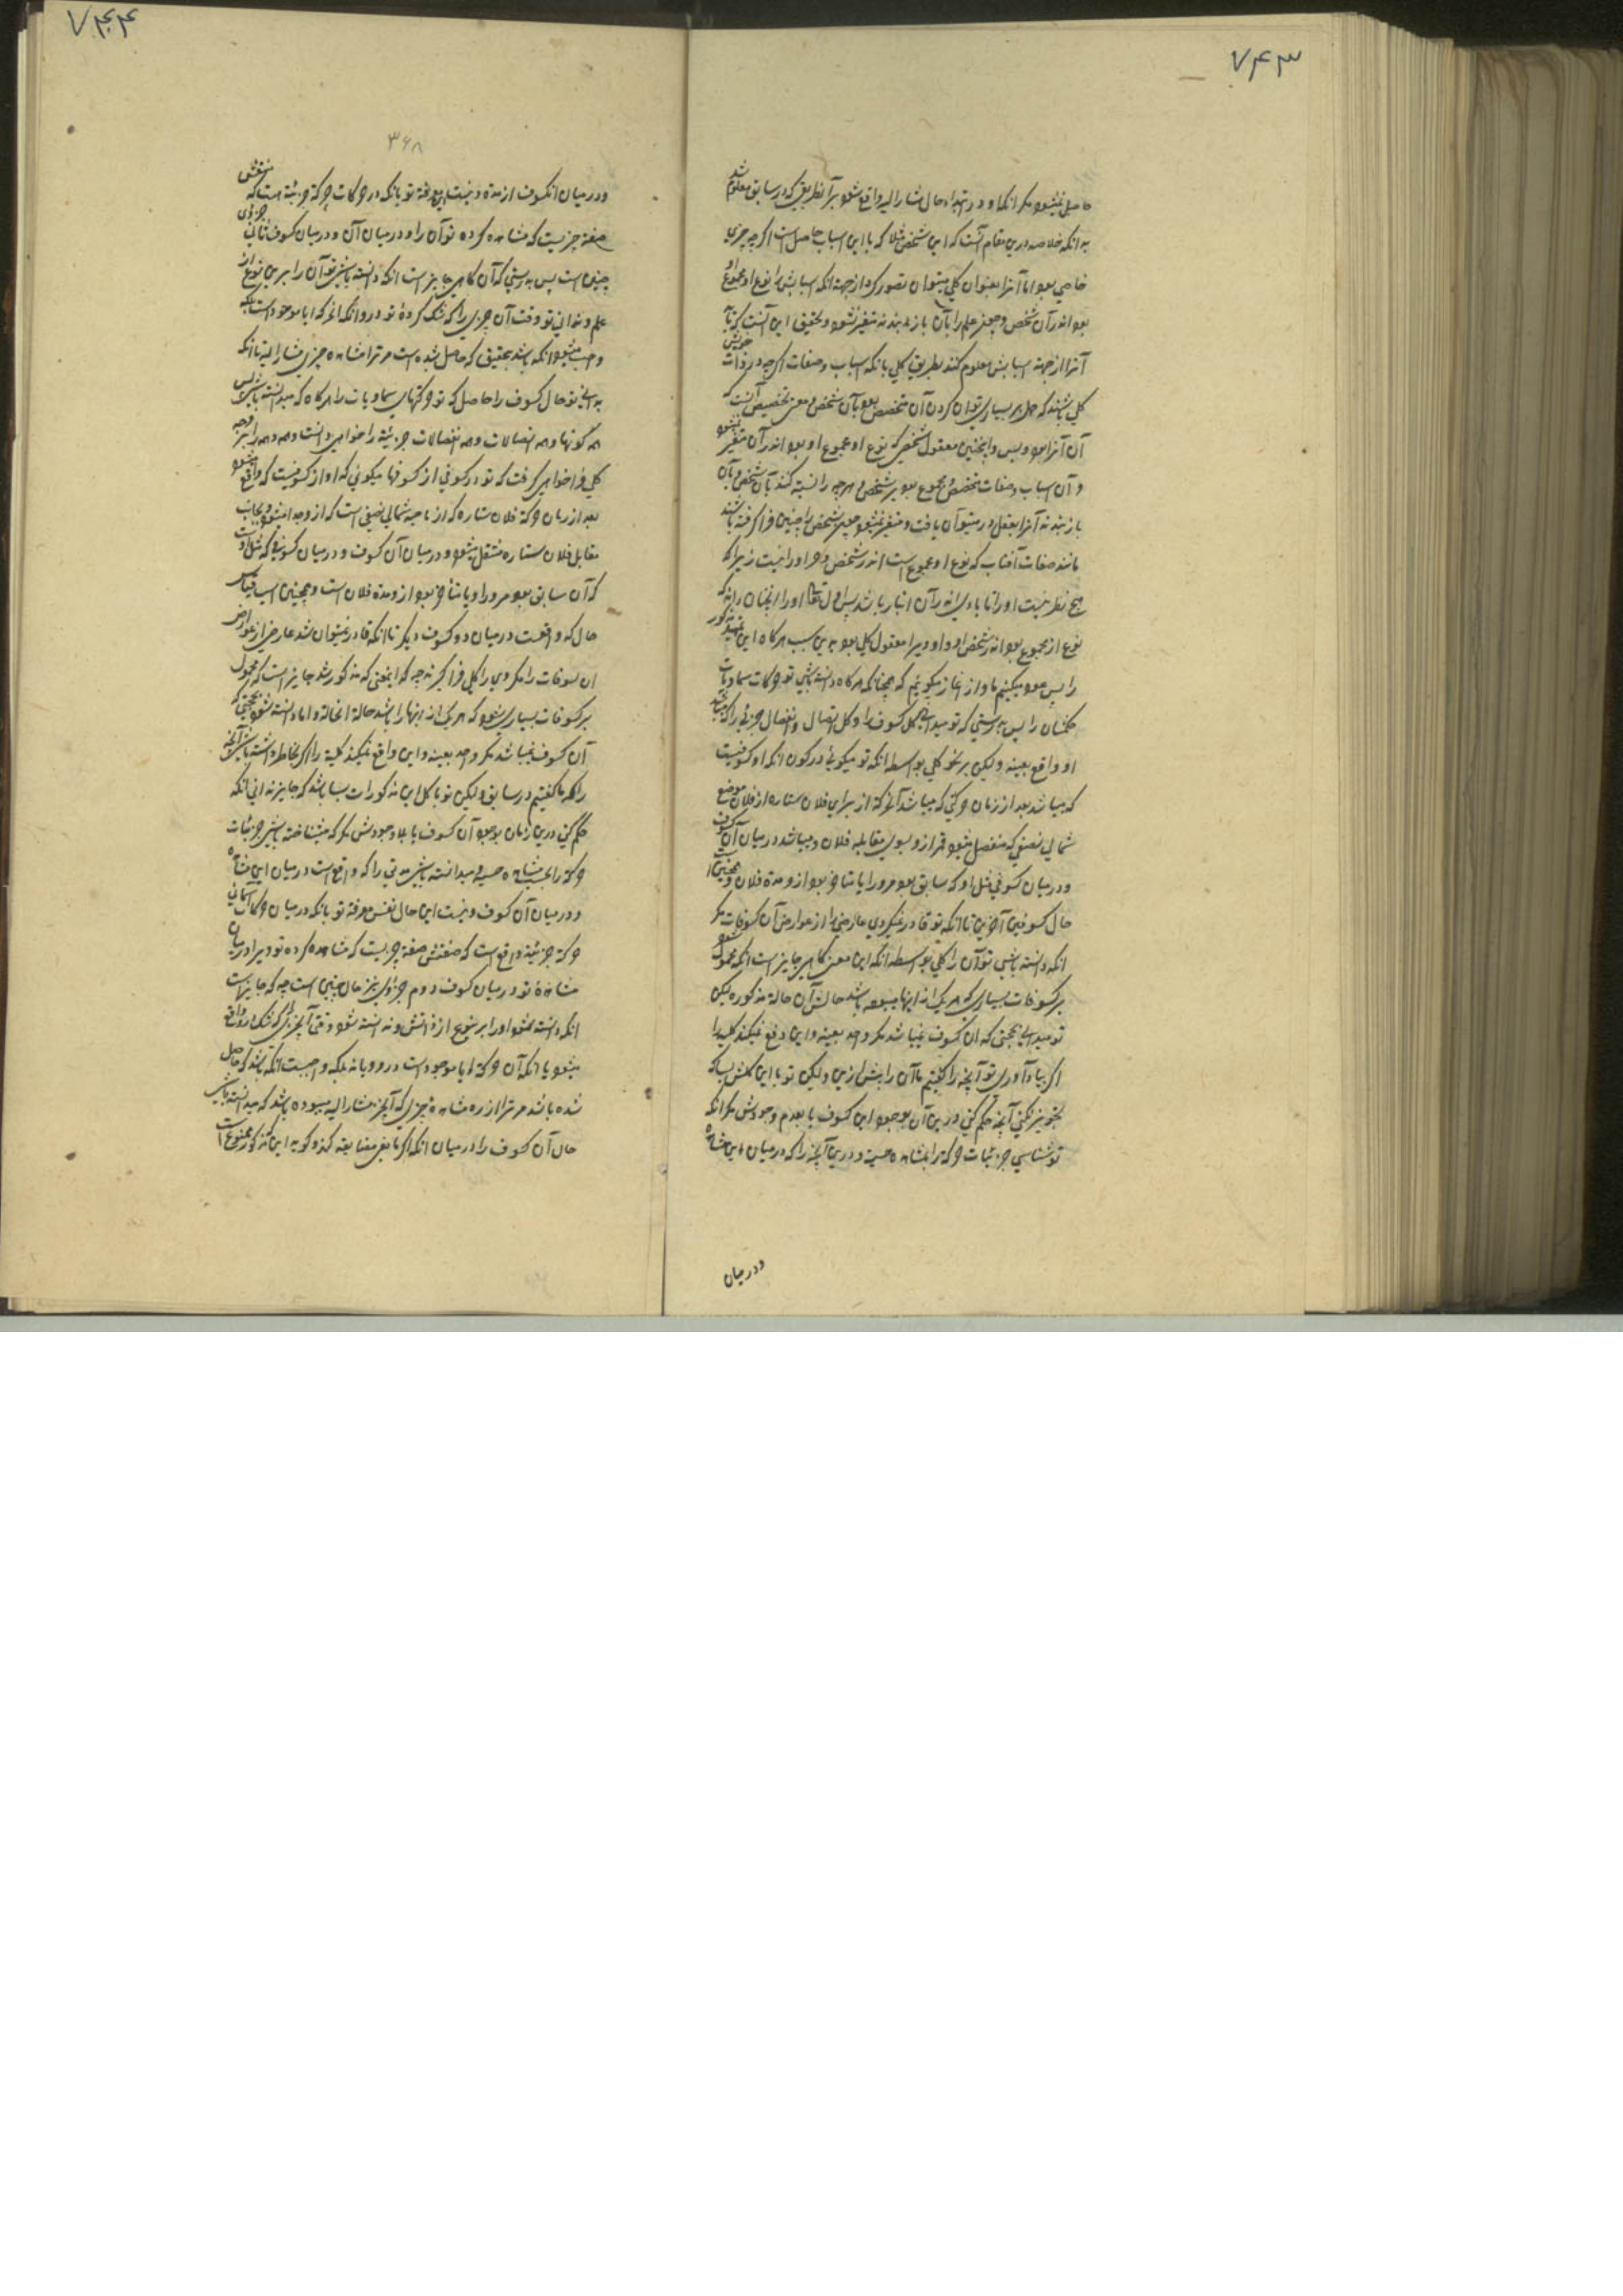 ۷۴۳
حاصل نمیشود مگر انکه او در ابتداء حال مشار الیه واقع شود بر آنطریق که در سابق معلوم شد
بدانکه خلاصه درین مقام آنست که این شخص مثلا که با این اسباب حاصل است اگر چه جزیی
خاصی بود اما آنرا بعنوان کلی میتوان تصور کرد از جهت انکه اسبابش را نوع او مجموع او
بود اندر آن شخص و بعلم را بآن باز بندند متغیر نشود و تحقیق این آنست که تا
آنرا از جهت اسبابش معلوم کنند بطریق کلی بانکه اسباب و صفات اگر چه در ذات خویش
کلی باشند که حمل بر بسیاری توان کردن آن متخصص بود بآن شخص و معنی تخصیص آنست که
آن آنرا بود و بس و اینچنین معقول شخصی که نوع او مجموع او بود اندر آن متغیر نشود
و آن اسباب و صفات متخصص و مجموع بود بر شخص و هر چه را نسبت کنند بآن شخص و بآن
باز بندند آنرا بعقل در میتوان یافت و متغیر نمیشود چه هر شخص را چنین فرا گرفته باشند
مانند صفات آفتاب که نوع او مجموع است اندر شخص و هر او را نیست زیرا که
هیچ نظیر نیست او را تا با وی اندر آن انباز باشد پس اول تعالی او را انچنان داند که
نوع از مجموع بود اندر شخص او و او دیرا معقول کلی بود بدین سبب هرگاه این تمهید مذکور
را پس عود میکنیم ما و از آغاز میگوییم که همچنانکه هرگاه دانسته باشی تو حرکات سماویات
همگیشان را پس بدرستی که تو میدانی کل کسوف را و کل اتصال و انفصال جزیی را که میباشد
او واقع بعینه ولیکن بر نحو کلی بواسطه انکه تو میگوئی در کون انکه او کسوفیست
که میباشد بعد از زمان حرکتی که میباشد آنحرکة از برای فلان ستاره از فلان موضع
شمالی نصفی که منفصل میشود قمر ازو بسوی مقابله فلان و میباشد در میان آن کسوف
و در میان کسوفی مثل او که سابق بود مر او را یا متاخر بود ازو مدة فلان و همچنین است
حال کسوفین آخرین تا انکه تو قادر نمیگردی عارضی را از عوارض آن کسوفات مگر
انکه دانسته باشی تو آن را کلی بواسطه انکه این معنی گاهی جایز است انکه محمول شود
بر کسوفات بسیاری که هر یک از اینها میبوده باشد حالش آن حالة مذکوره لیکن
تو میدانی بحجتی که ان کسوف نمیباشد مگر واحد بعینه و این دفع نمیکند کلیت را
اگر بیاد آوری تو آنچه را که گفتیم ما آن را پیش ازین ولیکن تو با این کلش بسا که
تجویز نکنی آنچه حکم کنی درین آن بوجود این کسوف یا بعدم وجودش مگر انکه
تو شناسی جزئیات حرکة را بمشاهده حسیت و درین آنچه را که در میان این مشاهد
و در میان
۷۴۴
۳۶۸
و در میان انکسوف از مدة و نیست این معرفة تو بانکه در حرکات حرکة جزئیة است که صفتش
صفة جزیست که مشاهده کرده تو آن را و در میان آن و در میان کسوف ثانی جزوی
چنین است پس بدرستی که آن گاهی جایز است انکه دانسته باشی تو آن را برین نوع از
علم و ندانی تو وقت آن جزیی را که شک کردهٔ تو درو انکه انحرکه ایا موجود است بلکه
واجب میشود انکه باشد بتحقیق که حاصل شده است مر ترا مشاهده چیزی مشار الیه تا انکه
بدانی تو حال کسوف را حاصل که تو حرکتهای سماویات را هرگاه که میدانسته باشی پس
همه کونها و همه اتصالات و همه انفصالات جزئیة را خواهی دانست و همه و همه را بر وجه
کلی فرا خواهی گرفت که تو در کونی از کسوفها میگوئی که او از کسوفیست که واقع میشود
بعد از زمان حرکة فلان ستاره که از ناحیه شمالی نصفی است که ازو جدا میشود و بجانب
مقابل فلان ستاره منتقل میشود و در میان آن کسوف و در میان کسوفی که مثل اوست
که آن سابق بود مر او را و یا متاخر بود ازو مدة فلان است و همچنین است قیاس
حال که واقعست در میان دو کسوف دیگر تا انکه قادر نمیتوان شد عارضی از عوارض
ان کسوفات را مگر وی را کلی فرا گیرند چه که اینمعنی که مذکور شد جایز است که محمول
بر کسوفات بسیاری شود که هر یک از اینها را باشد حالة انحالة و اما دانسته شود بحجتی که
آن کسوف نمیباشد مگر واحد بعینه و این واقع نمیکند کلیة را اگر بخاطر داشته باشی آنچه
را که ما گفتیم در سابق ولیکن تو با کل این مذکورات بسا باشد که جایز ندانی انکه
حکم کنی درین زمان بوجود آن کسوف یا بلا وجودش مگر که میشناخته باشی جزئیات
حرکة را بحسب مشاهده حسی و میدانسته باشی مدتی را که واقع است در میان این مشاهد
و در میان آن کسوف و نیست این حال نفس معرفة تو بانکه در میان حرکات آسمانی
حرکة جزئیة واقع است که صفتش صفة چیزیست که مشاهده کرده تو دیرا و در میان
مشاهدهٔ تو در میان کسوف دوم جزوی نیز حال چنین است چه که جایز است
انکه دانسته شود او را بر نوع از دانش و ندانسته شود وقتی آنچیزی را که شک در او واقع
میشود یا انکه آن حرکة ایا موجود است درو و یا نه بلکه واجبست انکه باشد که حاصل
شده باشد مر ترا از ره مشاهده چیزی که آنچیز مشار الیه میبوده باشد که میدانسته باشی
حال آن کسوف را در میان انکه اگر مانعی مضایقه کند و گوید این مذکور ممنوع است